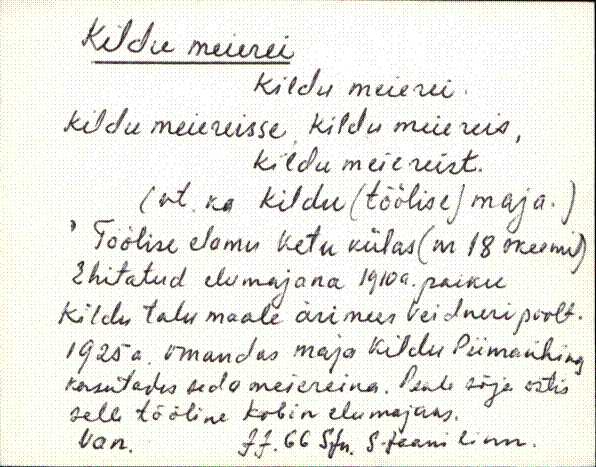 Kildu meierei
Kildu meierei.
Kildu meiereisse, Kildu meiereis,
Kildu meiereist.
(vt. ka Kildu (töölise) maja.)
Töölise elamu Ketu külas (n 18 skeemil)
Ehitatud elumajana 1910 a. paiku
Kildu talu maale ärimees Veidneri poolt.
1925 a. omandas maja Kildu Piimaühing
kasutades seda meiereina. Peale sõja ostis
selle tööline Kobin elumajaks.
Van. 66 S-Jaani linn.